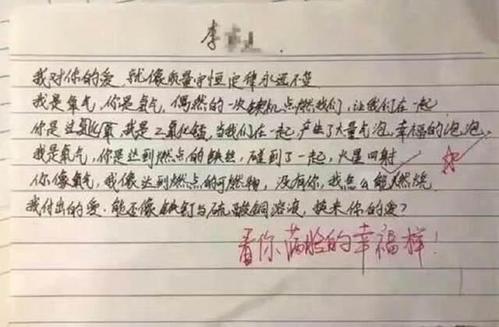 李
我对你的爱，就像质量守恒定律永远不变
我是氢气，你是氧气，偶然的一次契机点燃我们，让我们在一起
你是过氧化氢，我是二氧化锰，当我们在一起，产生了大量气泡，幸福的泡泡，
我是氧气，你是达到燃点的铁丝，碰到了一起，火星四射
你像氧气，我像达到燃点的可燃物，没有你，我怎么能燃烧
我付出的爱，能否像铁钉与硫酸铜溶液，换来你的爱？
看你满脸的幸福样！